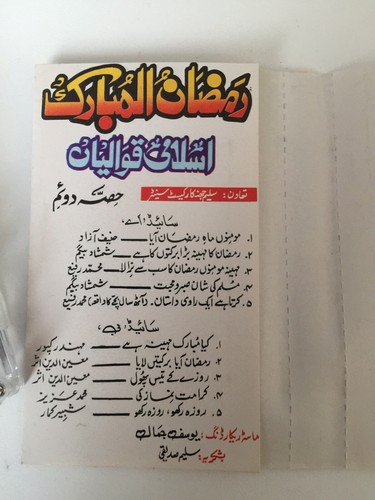 رمضان المبارک
اسلامی قوالیاں
حصہ دوئم
تعاون : سلیم جھنکار کیسٹ سینٹر
سائیڈ، اے،
۱. مومنوں ماہِ رمضان آیا — حنیف آزاد
۲. رمضان کا مہینہ بڑا برکتوں کا ہے — شمشاد بیگم
۳. مہینہ مومنوں رمضان کا سب سے نرالا — محمد رفیع
۴. مسلم کی شان صبر و محبت — شمشاد بیگم
۵. کرتا ہے ایک راوی داستان. (آٹھ سال بچے کا واقعہ) محمد رفیع
سائیڈ، بی،
۱. کیا مبارک مہینہ ہے — مہندر کپور
۲. رمضان آیا برکتیں لایا — معین الدین اثر
۳. روزے کے تیس پھول — معین الدین اثر
۴. کرامت نماز کی — محمد عزیز
۵. روزہ رکھو، روزہ رکھو — شبیر کمار
ماسٹر ریکارڈنگ : یوسف جمال
بشکریہ : سلیم صدیقی